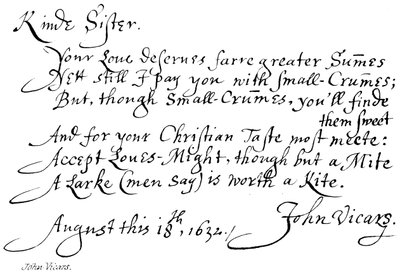 Kinde Sister.
Your Loue deserues farre greater Sum̄es
Nett still I pay you with small-Crum̄es;
But, though Small-Crum̄es, you'll finde
them sweet
And for your Christian Taste most meete:
Accept Loues-Might, though but a Mite
A Larke (men say) is worth a Kite.
August this 18th, 1634.
John Vicars.
John Vicars.